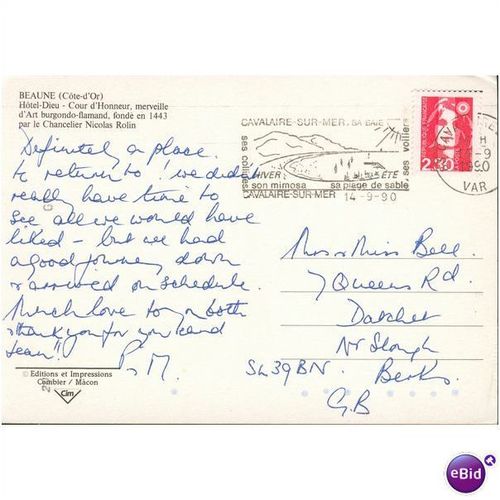 BEAUNE (Côte-d'Or)
Hôtel-Dieu - Cour d'Honneur, merveille
d'Art burgondo-flamand, fondé en 1443
par le Chancelier Nicolas Rolin
Definitely a place
to return to! we didn't
really have time to
see all we would have
liked - but we had
a good journey down
& arrived on schedule.
Much love to you both
thank you for your
P.M.
© Editions et Impressions
Combier / Mâcon
Cim
CAVALAIRE-SUR-MER SA BAIE
ses collines
ses voiliers
HIVER ÉTÉ
son mimosa sa plage de sable
CAVALAIRE-SUR-MER 14-9-90
2,30
H
-9
1990
VAR
Mrs & Miss Bell
7 Queens Rd.
Datchet
Nr Slough
SL39BN. Berks
G.B
eBid